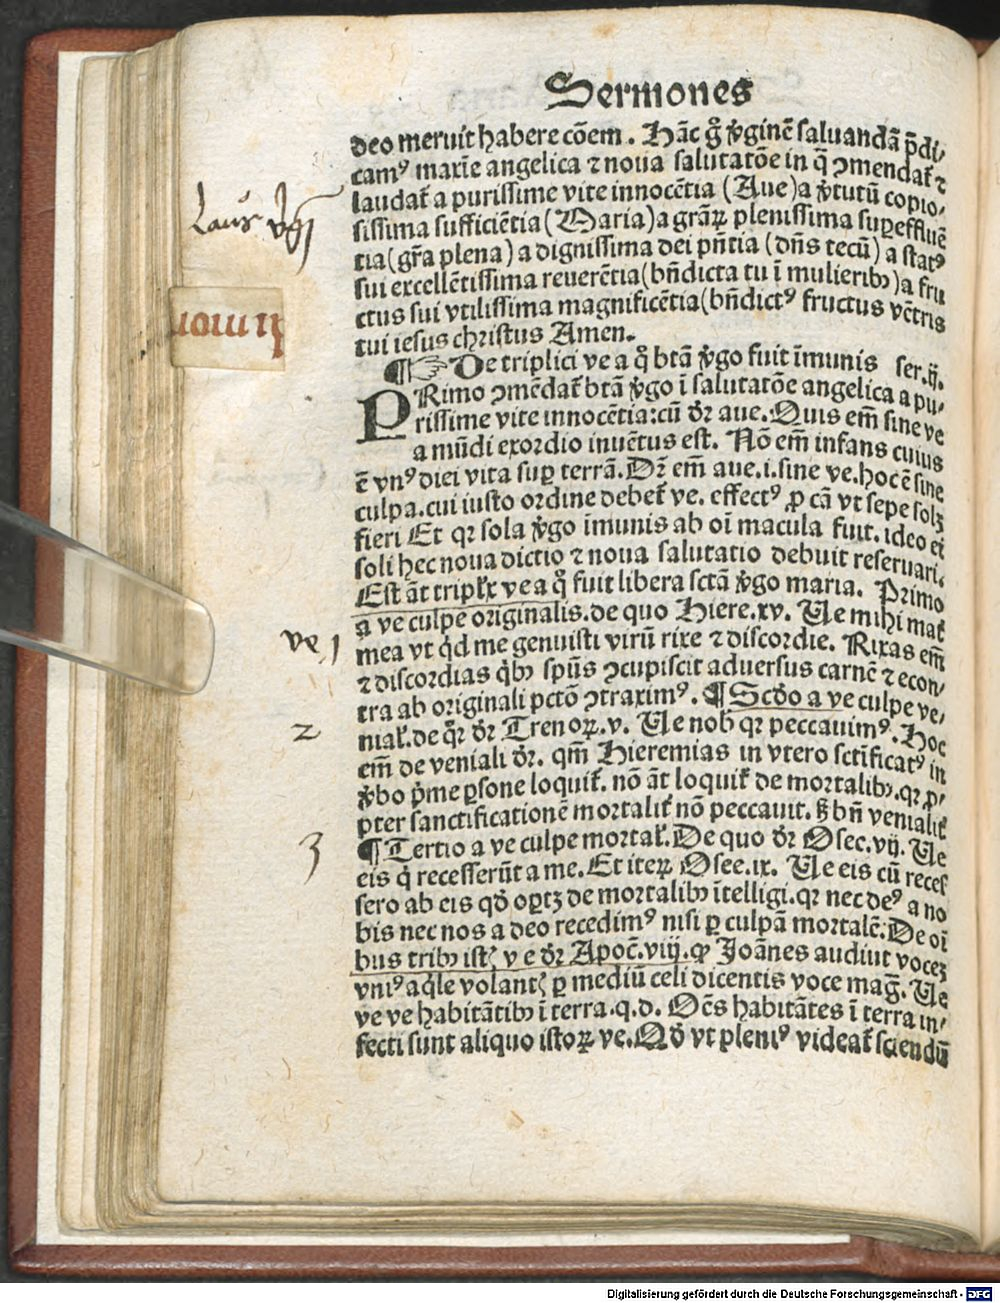 Sermones
deo meruit habere cōem. Hāc gͦ v̾ginē saluandā p̄di⸗
camꝰ maxīe angelica ⁊ noua salutatōe in q̄ ↄmendat᷑ ⁊
laudat᷑ a purissime vite innocētia (Aue) a v̾tutū copio⸗
sissima sufficiētia (Maria) a grāꝝ plenissima suꝑeffluē
tia (gr̄a plena) a dignissima dei pn̄tia (dn̄s tecū) a statꝰ
sui excellētissima reuerētia (bn̄dicta tu ī mulieribꝫ) a fru
ctus sui vtilissima magnificētia (bn̄dictꝰ fructus vētris
tui iesus christus Amen.
¶ ☞ De triplici ve a qͦ btā v̾go fuit īmunis ser.ij.
PRimo ↄmēdat᷑ btā v̾go ī salutatōe angelica a pu⸗
rissime vite innocētia: cū dr̄ aue. Quis em̄ sine ve
a mūdi exordio inuētus est. Nō em̄ infans cuius
ē vnꝰ diei vita suꝑ terrā. Dr̄ em̄ aue.i. sine ve. hoc ē sine
culpa. cui iusto ordine debet᷑ ve. effectꝰ ꝓ cā vt sepe solꝫ
fieri Et qꝛ sola v̾go imunis ab oī macula fuit. ideo et
soli hec noua dictio ⁊ noua salutatio debuit reseruari.
Est āt triplx̄ ve a qͦ fuit libera sctā v̾go maria. Primo
a ve culpe originalis. de quo Hiere.xv. Ue mihi mat᷑
mea vt qͥd me genuisti virū rixe ⁊ discordie. Rixas em̄
⁊ discordias qͥbꝫ spūs ↄcupiscit aduersus carnē ⁊ econ⸗
tra ab originali pctō ↄtraximꝰ. ¶ Scd̄o a ve culpe ve⸗
nial᷑. de qͦ dr̄ Trenoꝝ.v. Ue nob̄ qꝛ peccauimꝰ. Hoc
em̄ de veniali dr̄. qm̄ Hieremias in vtero sctīficatꝰ in
v̾bo p̄me ꝑsone loquit᷑. nō āt loquit᷑ de mortalibꝫ. qꝛ ꝓ⸗
pter sanctificationē mortalit᷑ nō peccauit. sꝫ bn̄ venialit᷑
¶ Tertio a ve culpe mortal᷑. De quo dr̄ Osec.vij. Ue
eis qͥ recesserūt a me. Et iteꝝ Osee.ix. Ue eis cū recef
sero ab eis qd̄ oꝑtꝫ de mortalibꝫ ītelligi. qꝛ nec deꝰ a no
bis nec nos a deo recedimꝰ nisi ꝑ culpā mortalē. De oī
bus tribꝫ istꝭ ve dr̄ Apoc̄.viij. ꝙ Joānes audiuit vocez
vniꝰ aq̄le volantꝭ ꝑ mediū celi dicentis voce mag̅. Ue
ve ve habitātibꝫ ī terra.q.d. Oēs habitātes ī terra in⸗
fecti sunt aliquo istoꝝ ve. Qd̄ vt pleniꝰ videat᷑ sciendū
ve 1
2
3
Digitalisierung gefördert durch die Deutsche Forschungsgemeinschaft - DFG